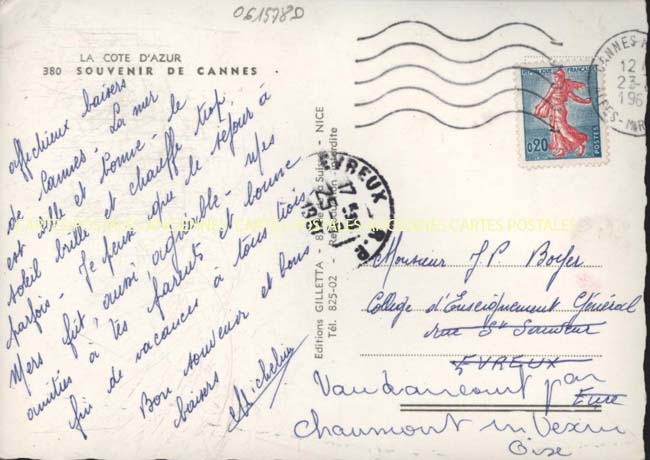 061578D
LA COTE D'AZUR
380 SOUVENIR DE CANNES
affectueux baisers
de Cannes - La mer
est belle et bonne - le
soleil brille et chauffe trop,
parfois - Je peux que le séjour à
Mers fut aussi agréable - Mes
amitiés à tes parents et bonne
fin de vacances à tous trois
Bon souvenir et bons
baisers
Micheline
Editions GILLETTA - NICE
Tél. 825-02 - Reproduction interdite
REPUBLIQUE FRANÇAISE
0,20
POSTES
CANNES
12
23
196
EVREUX R.P.
17
25
1961
CARTES POSTALES ANCIENNES CARTES POSTALES
Monsieur J.P. Boyer
College d'Enseignement Général
rue St Sauveur
EVREUX
Eure
Vaudancourt par
Chaumont en Vexin
Oise